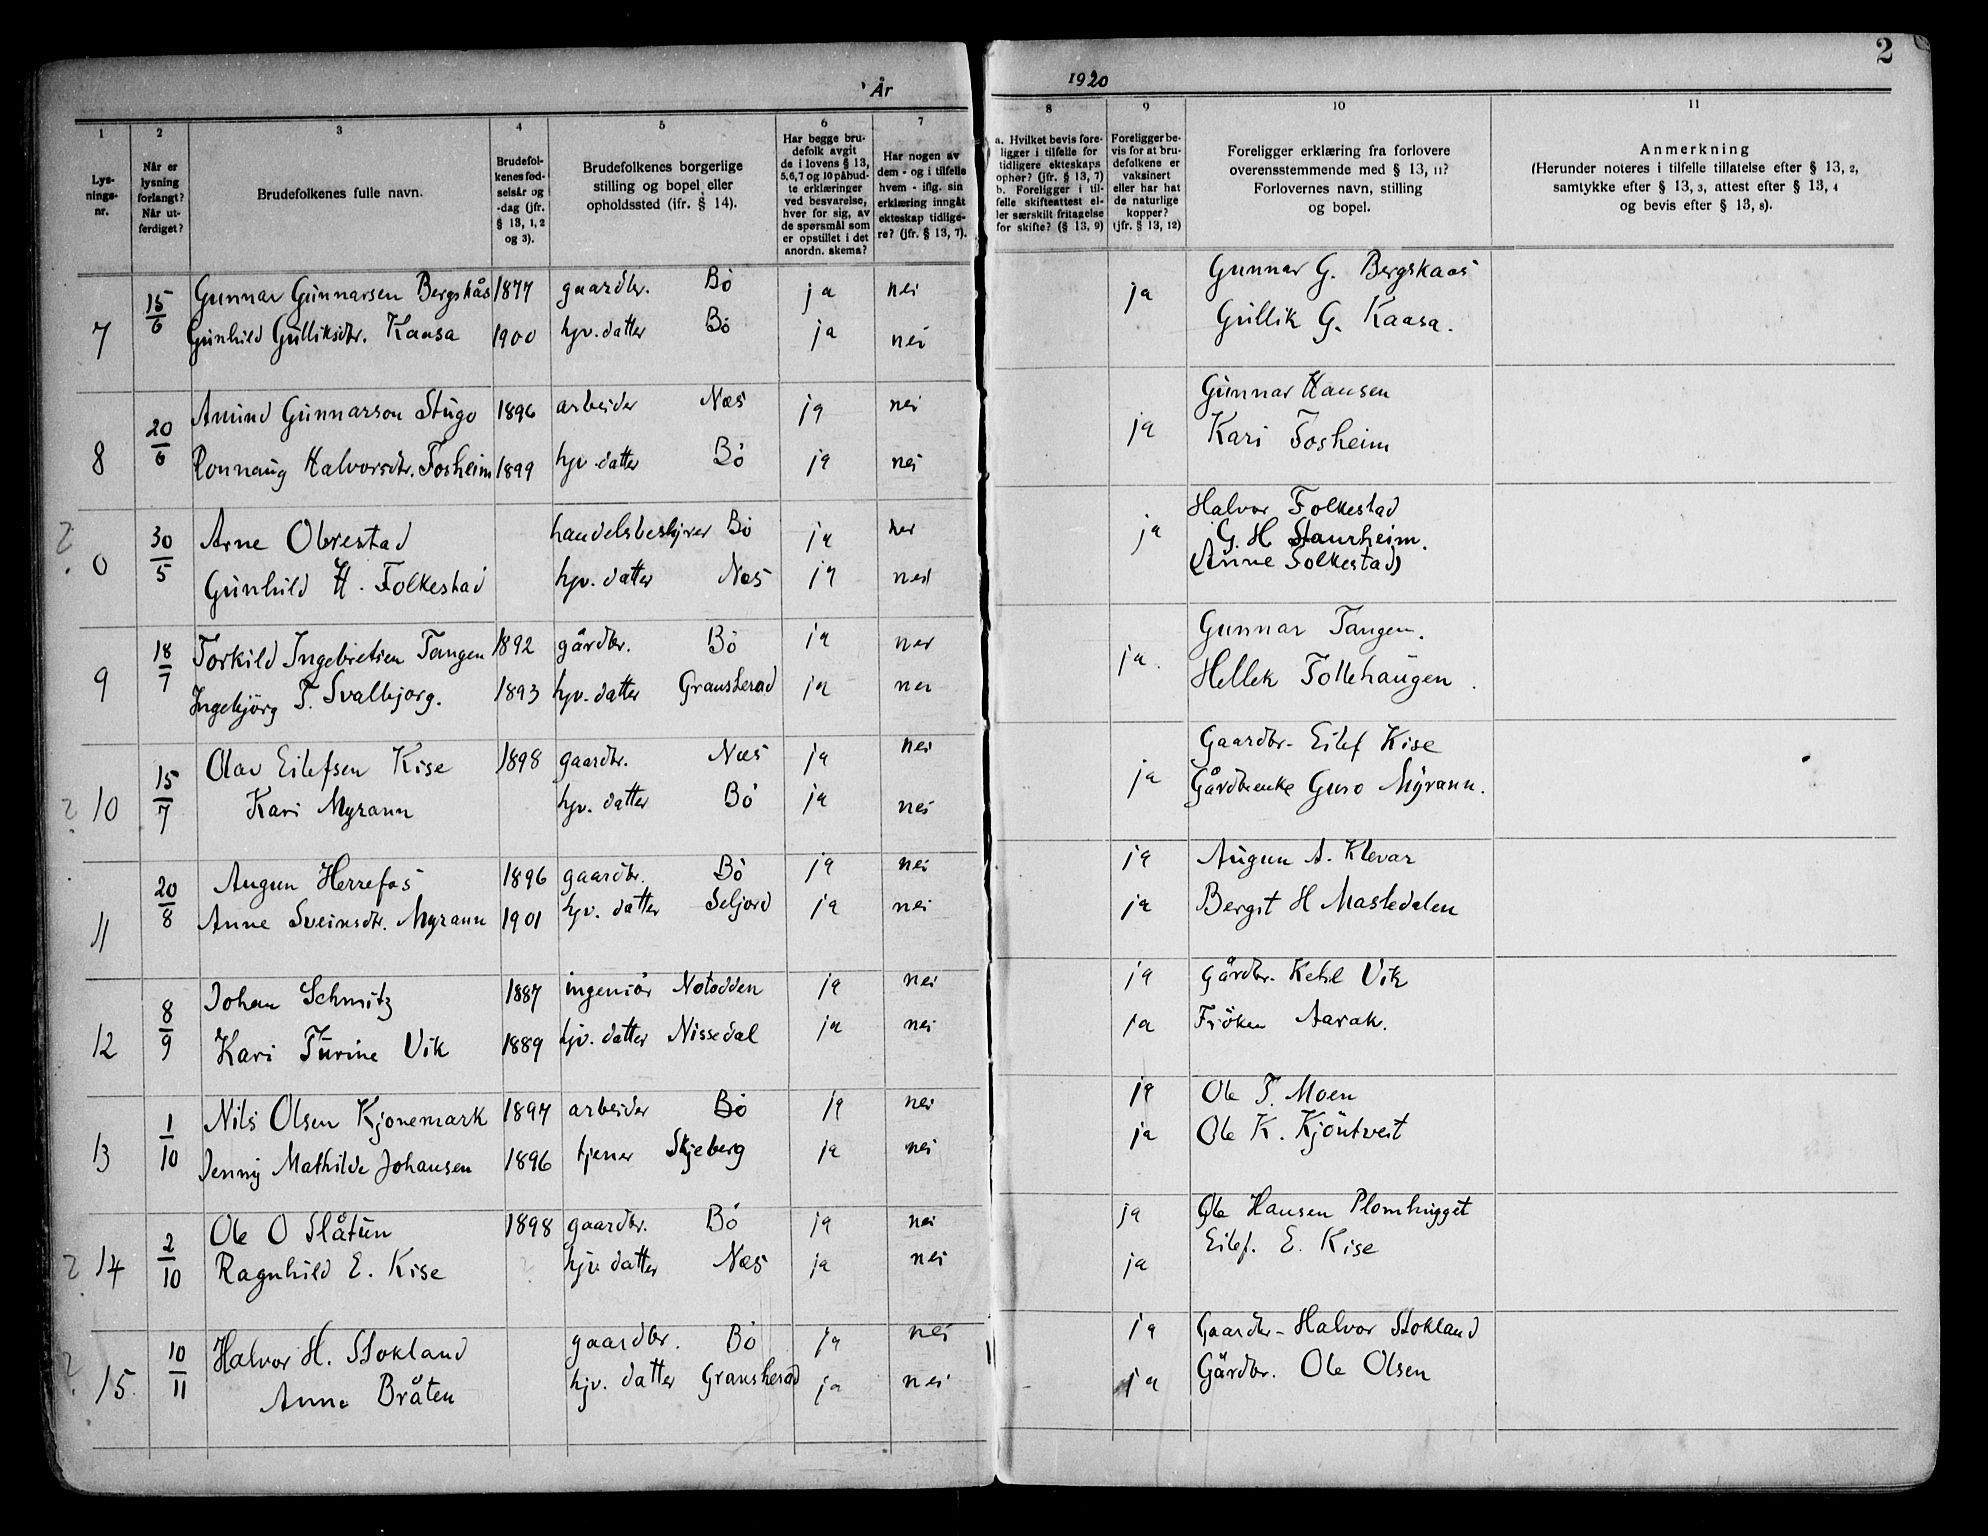 2
År 1920
1
Lys-
nings-
nr.
2
Når er
lysning
forlangt?
Når ut-
ferdiget?
3
Brudefolkenes fulle navn.
4
Brudefol-
kenes fød-
selsår og
-dag (jfr.
§ 13, 1, 2
og 3).
5
Brudefolkenes borgerlige
stilling og bopel eller
opholdssted (ifr. § 14).
6
Har begge bru-
defolk avgit
de i lovens § 13,
5,6,7 og 10 påbud-
te erklæringer
ved besvarelse,
hver for sig, av
de spørsmål som
er opstillet i det
anordn. skema?
7
Har nogen av
dem - og i tilfelle
hvem - iflg. sin
erklæring inngåt
ekteskap tidlige-
re? (jfr. § 13, 7).
8
a. Hvilket bevis fore-
ligger i tilfelle for
tidligere ekteskaps
ophør? (jfr. § 13, 7)
b. Foreligger i til-
felle skifteattest el-
ler særskilt fritagelse
for skifte? (§ 13, 9)
9
Foreligger be-
vis for at bru-
defolkene er
vaksinert
eller har hat
de naturlige
kopper?
(jfr. § 13, 12)
10
Foreligger erklæring fra forlovere
overensstemmende med § 13, 11?
Forlovernes navn, stilling
og bopel.
11
Anmerkning
(Herunder noteres i tilfelle tillatelse efter § 13, 2,
samtykke efter § 13, 3, attest efter § 13, 4
og bevis efter § 13, 8).
7 15/6 Gunnar Gunnarsen Bergskås 1877 gaardbr. Bö ja nei ja Gunnar G. Bergskaas
Gunhild Gulliksdtr. Kaasa 1900 hjv. datter Bö ja nei Gullik G. Kaasa.
8 20/6 Amund Gunnarson Stugo 1896 arbeider Næs ja nei ja Gunnar Hansen
Ronnaug Halvorsdtr. Fosheim 1899 hjv. datter Bö ja nei Kari Fosheim
? 0 30/5 Arne Obrestad handelsbestyrer Bö ja nei ja Halvor Folkestad
G. H. Staurheim.
Gunhild H. Folkestad hjv. datter Næs ja nei (Anne Folkestad)
9 18/7 Torkild Ingebretsen Tangen 1892 gårdbr. Bö ja nei ja. Gunnar Tangen.
Ingebjörg T. Svalbjorg. 1893 hjv. datter Gransherad ja nei Hellek Follehaugen.
? 10 15/7 Olav Eilefsen Kise 1898 gaardbr. Næs ja nei ja Gaardbr. Eilef Kise
Kari Myrann hjv. datter Bö ja nei Gårdbenke Guro Myrann.
11 20/8 Augun Herrefos 1896 gaardbr. Bö ja nei ja Augun A. Klevar
Anne Sveinsdtr. Myrann 1901 hjv. datter Seljord ja nei ja Bergit H Mastedalen
12 8/9 Johan Schmitz 1887 ingeniör Notodden ja nei ja Gårdbr. Ketil Vik
Kari Turine Vik 1889 hjv. datter Nissedal ja nei ja Fröken Aarak.
13 1/10 Nils Olsen Kjonemark 1897 arbeider Bö ja nei ja Ole T. Moen
Jenny Mathilde Johansen 1896 tjener Skjeberg ja nei ja Ole K. Kjöntveit
? 14 2/10 Ole O Slåtun 1898 gaardbr. Bö ja nei ja Ole Hansen Plomhugget
Ragnhild E. Kise ? hjv. datter Næs ja nei ja Eilef. E. Kise
? 15. 10/11 Halvor H. Stokland gaardbr. Bö ja nei ja Gaardbr. Halvor Stokland
Anne Bråten hjv. datter Gransherad ja nei ja Gårdbr. Ole Olsen